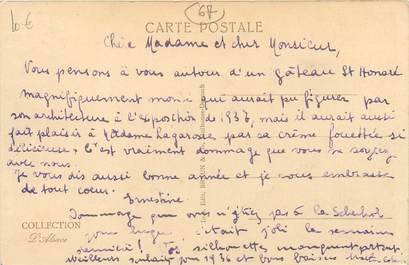 10 €
67
CARTE POSTALE
Chère Madame et cher Monsieur,
Nous pensons à vous autour d'un gâteau St Honoré
magnifiquement monté qui aurait pu figurer par
son architecture à l'Exposition de 1937, mais il aurait aussi
fait plaisir à Madame Lagarosse par sa crème fouettée si
délicieuse. C'est vraiment dommage que vous ne soyez
avec nous.
Je vous dis aussi bonne année et je vous embrasse
de tout coeur.
Ernestine
Dommage que vous n'étiez pas à la
était joli la semaine
dernière! silhouettes manquent partout.
Meilleurs souhaits pour 1936 et bons baisers
COLLECTION
D'Alsace
Edit. BRAUN &